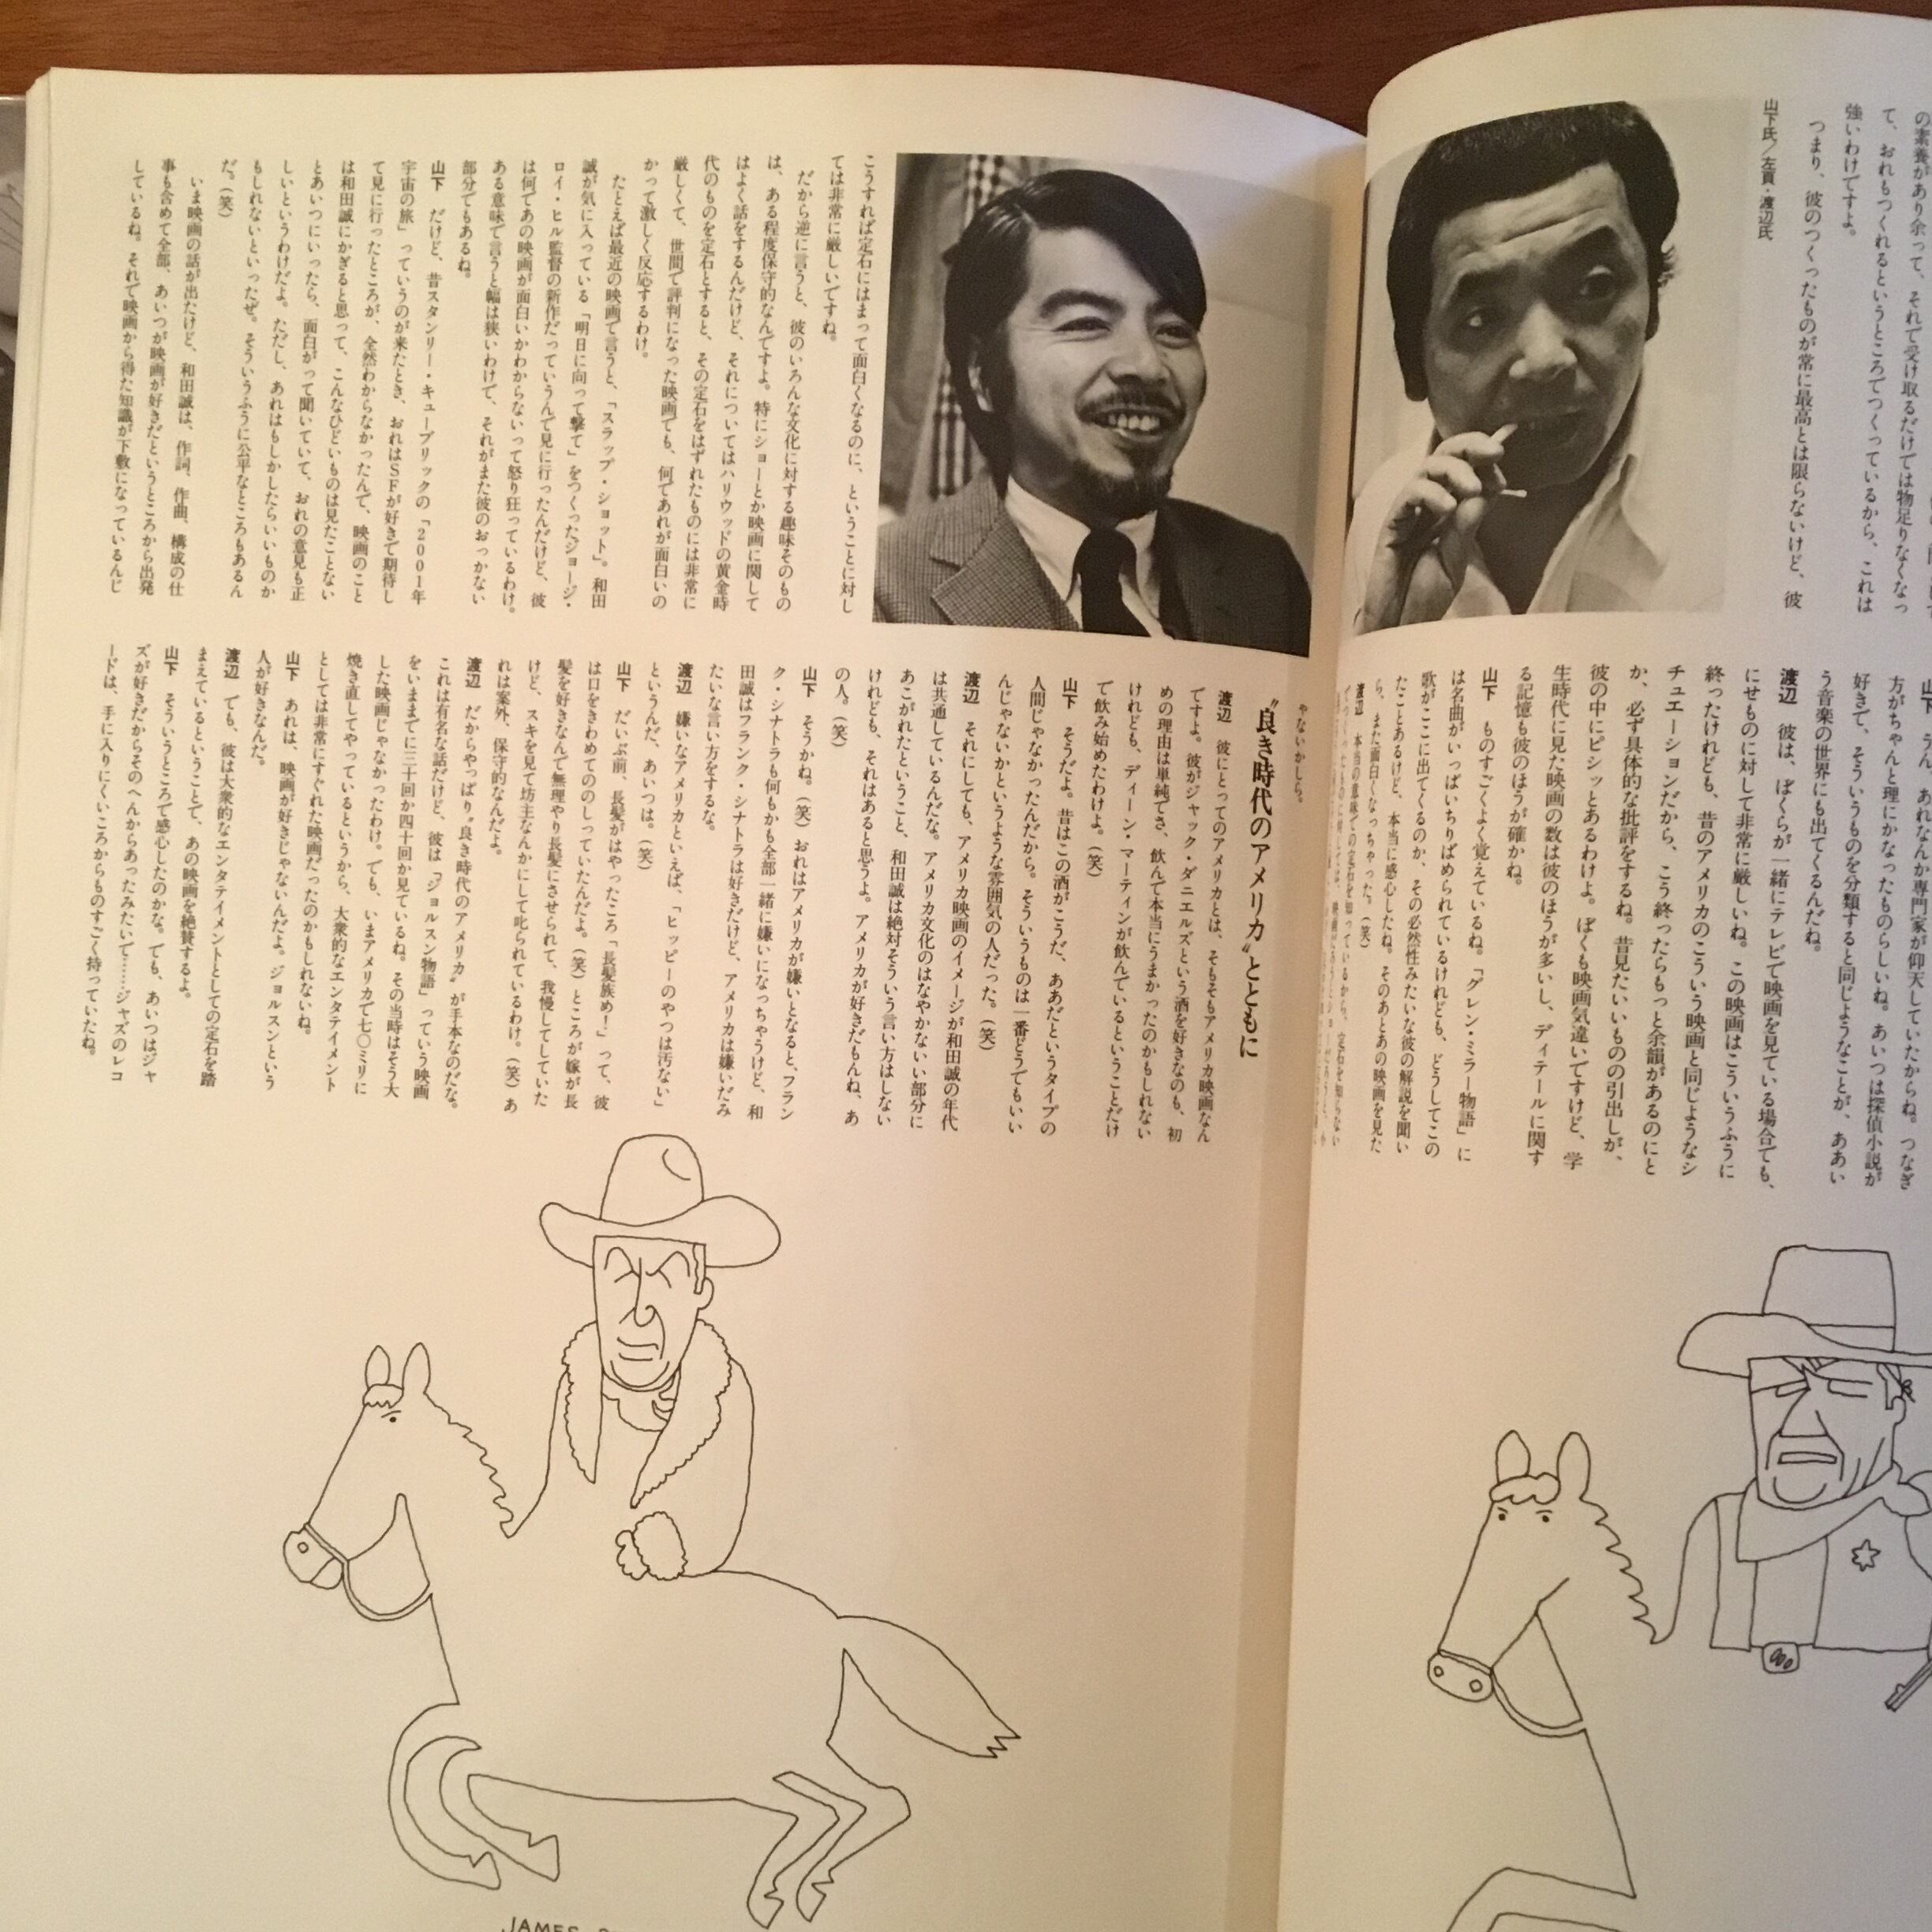 の素養があり余って、それで受け取るだけでは物足りなくなっ
て、おれもつくれるというところでつくっているから、これは
強いわけですよ。
つまり、彼のつくったものが常に最高とは限らないけど、彼
山下氏／左頁・渡辺氏
山下　うん、あれなんか専門家が仰天していたからね。つなぎ
方がちゃんと理にかなったものらしいね。あいつは探偵小説が
好きで、そういうものを分類すると同じようなことが、ああい
う音楽の世界にも出てくるんだね。
渡辺　彼は、ぼくらが一緒にテレビで映画を見ている場合でも、
にせものに対して非常に厳しいね。この映画はこういうふうに
終ったけれども、昔のアメリカのこういう映画と同じようなシ
チュエーションだから、こう終ったらもっと余韻があるのにと
か、必ず具体的な批評をするね。昔見たいいものの引出しが、
彼の中にピシッとあるわけよ。ぼくも映画気違いですけど、学
生時代に見た映画の数は彼のほうが多いし、ディテールに関す
る記憶も彼のほうが確かね。
山下　ものすごくよく覚えているね。「グレン・ミラー物語」に
は名曲がいっぱいちりばめられているけれども、どうしてこの
歌がここに出てくるのか、その必然性みたいな彼の解説を聞い
たことあるけど、本当に感心したね。そのあとあの映画を見た
ら、また面白くなっちゃった。（笑）
渡辺　本当の意味での定石を知っているから、定石を知らない
こうすれば定石にはまって面白くなるのに、ということに対し
ては非常に厳しいですね。
だから逆に言うと、彼のいろんな文化に対する趣味そのもの
は、ある程度保守的なんですよ。特にショーとか映画に関して
はよく話をするんだけど、それについてはハリウッドの黄金時
代のものを定石とすると、その定石をはずれたものには非常に
厳しくて、世間で評判になった映画でも、何であれが面白いの
かって激しく反応するわけ。
たとえば最近の映画で言うと、「スラップ・ショット」。和田
誠が気に入っている「明日に向って撃て」をつくったジョージ・
ロイ・ヒル監督の新作だっていうんで見に行ったんだけど、彼
は何であの映画が面白いかわからないって怒り狂っているわけ。
ある意味で言うと幅は狭いわけで、それがまた彼のおっかない
部分でもあるね。
山下　だけど、昔スタンリー・キューブリックの「2001年
宇宙の旅」っていうのが来たとき、おれはSFが好きで期待し
て見に行ったところが、全然わからなかったんで、映画のこと
は和田誠にかぎると思って、こんなひどいものは見たことない
とあいつにいったら、面白がって聞いていて、おれの意見も正
しいというわけだよ。ただし、あれはもしかしたらいいものか
もしれないといったぜ。そういうふうに公平なところもあるん
だ。（笑）
いま映画の話が出たけど、和田誠は、作詞、作曲、構成の仕
事も含めて全部、あいつが映画が好きだというところから出発
しているね。それで映画から得た知識が下敷になっているんじ
ゃないかしら。
〝良き時代のアメリカ〟とともに
渡辺　彼にとってのアメリカとは、そもそもアメリカ映画なん
ですよ。彼がジャック・ダニエルズという酒を好きなのも、初
めの理由は単純でさ、飲んで本当にうまかったのかもしれない
けれども、ディーン・マーティンが飲んでいるということだけ
で飲み始めたわけよ。（笑）
山下　そうだよ。昔はこの酒がこうだ、ああだというタイプの
人間じゃなかったんだから。そういうものは一番どうでもいい
んじゃないかというような雰囲気の人だった。（笑）
渡辺　それにしても、アメリカ映画のイメージが和田誠の年代
は共通しているんだな。アメリカ文化のはなやかないい部分に
あこがれたということ、和田誠は絶対そういう言い方はしない
けれども、それはあると思うよ。アメリカが好きだもんね、あ
の人。（笑）
山下　そうかね。（笑）おれはアメリカが嫌いとなると、フラン
ク・シナトラも何もかも全部一緒に嫌いになっちゃうけど、和
田誠はフランク・シナトラは好きだけど、アメリカは嫌いだみ
たいな言い方をするな。
渡辺　嫌いなアメリカといえば、「ヒッピーのやつは汚ない」
というんだ、あいつは。（笑）
山下　だいぶ前、長髪がはやったころ「長髪族め！」って、彼
は口をきわめてののしっていたんだよ。（笑）ところが嫁が長
髪を好きなんで無理やり長髪にさせられて、我慢してしていた
けど、スキを見て坊主なんかにして叱られているわけ。（笑）あ
れは案外、保守的なんだよ。
渡辺　だからやっぱり〝良き時代のアメリカ〟が手本なのだな。
これは有名な話だけど、彼は「ジョルスン物語」っていう映画
をいままでに三十回か四十回か見ているね。その当時はそう大
した映画じゃなかったわけ。でも、いまアメリカで七〇ミリに
焼き直してやっているというから、大衆的なエンタテイメント
としては非常にすぐれた映画だったのかもしれないね。
山下　あれは、映画が好きじゃないんだよ。ジョルスンという
人が好きなんだ。
渡辺　でも、彼は大衆的なエンタテイメントとしての定石を踏
まえているということで、あの映画を絶賛するよ。
山下　そういうところで感心したのかな。でも、あいつはジャ
ズが好きだからそのへんからあったみたいで……ジャズのレコ
ードは、手に入りにくいころからものすごく持っていたね。
JAMES